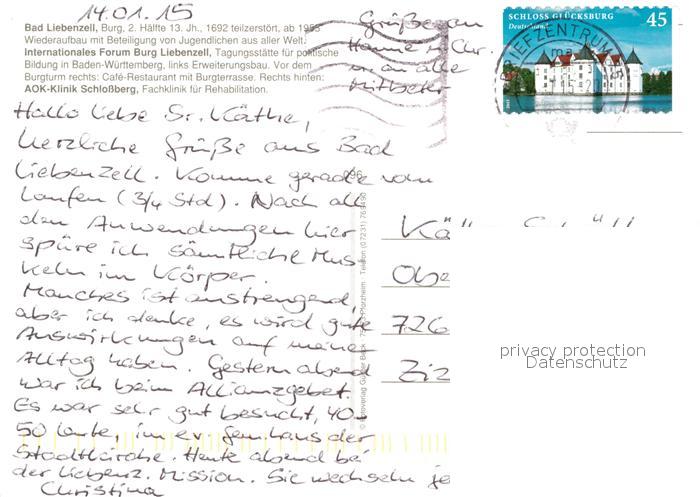 14.01.15
Bad Liebenzell, Burg, 2. Hälfte 13. Jh., 1692 teilzerstört, ab 1953
Wiederaufbau mit Beteiligung von Jugendlichen aus aller Welt.
Internationales Forum Burg Liebenzell, Tagungsstätte für politische
Bildung in Baden-Württemberg, links Erweiterungsbau. Vor dem
Burgturm rechts: Café-Restaurant mit Burgterrasse. Rechts hinten:
AOK-Klinik Schloßberg, Fachklinik für Rehabilitation.
Grüße an
Hanne
an alle
Mitbeter
SCHLOSS GLÜCKSBURG 45
Deutschland
BRIEFZENTRUM
Hallo liebe Sr. Käthe,
herzliche Grüße aus Bad
Liebenzell. Komme gerade vom
Laufen (3/4 Std). Nach all
den Anwendungen hier
spüre ich sämtliche Mus-
keln im Körper.
Manches ist anstrengend,
aber ich denke, es wird gute
Auswirkungen auf meinen
Alltag haben. Gestern abend
war ich beim Allianzgebet.
Es war sehr gut besucht, 40-
50 Leute, im ev. Gemhaus der
Stadtkirche. Heute abend bei
der Liebenz. Mission. Sie wechseln je
Christina
Kä
Obe
726
Ziz
privacy protection
Datenschutz